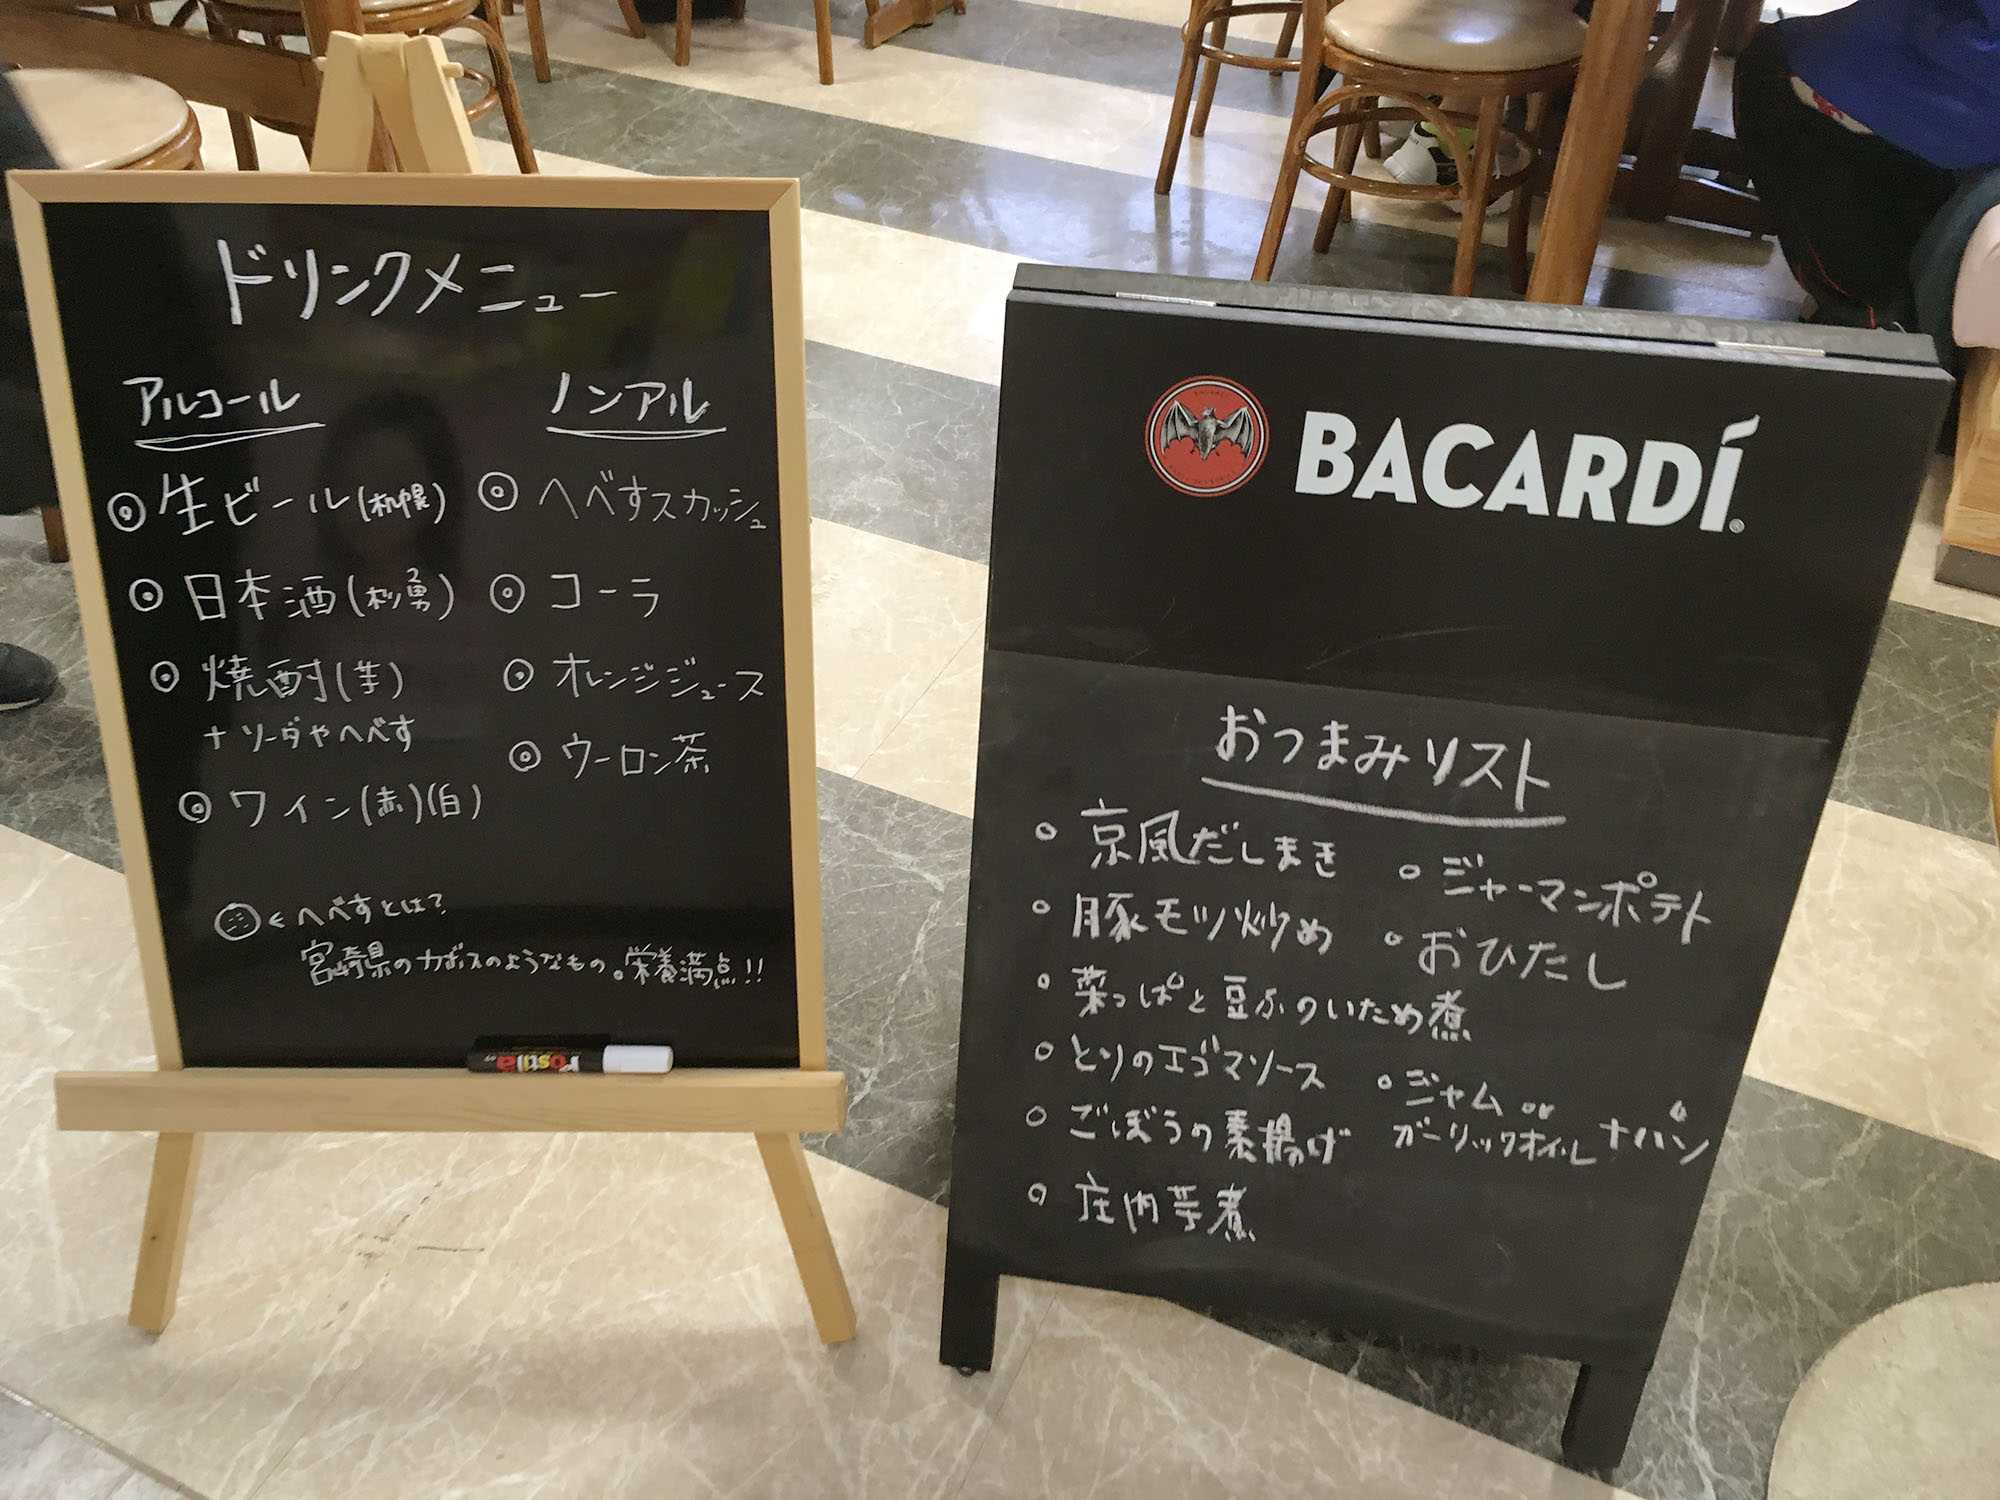 ドリンクメニュー
アルコール
◎ 生ビール(札幌)
◎ 日本酒(松勇)
◎ 焼酎(芋)
+ソーダやへべす
◎ ワイン(赤)(白)
ノンアル
◎ へべすスカッシュ
◎ コーラ
◎ オレンジジュース
◎ ウーロン茶
← へべすとは?
宮崎県のカボスのようなもの。栄養満点!!
Posca
BACARDÍ
おつまみリスト
○ 京風だしまき
○ 豚モツ炒め
○ 菜っぱと豆ふのいため煮
○ とりのエゴマソース
○ ごぼうの素揚げ
○ 庄内芋煮
○ ジャーマンポテト
○ おひたし
○ ジャム or
ガーリックオイル ナパン